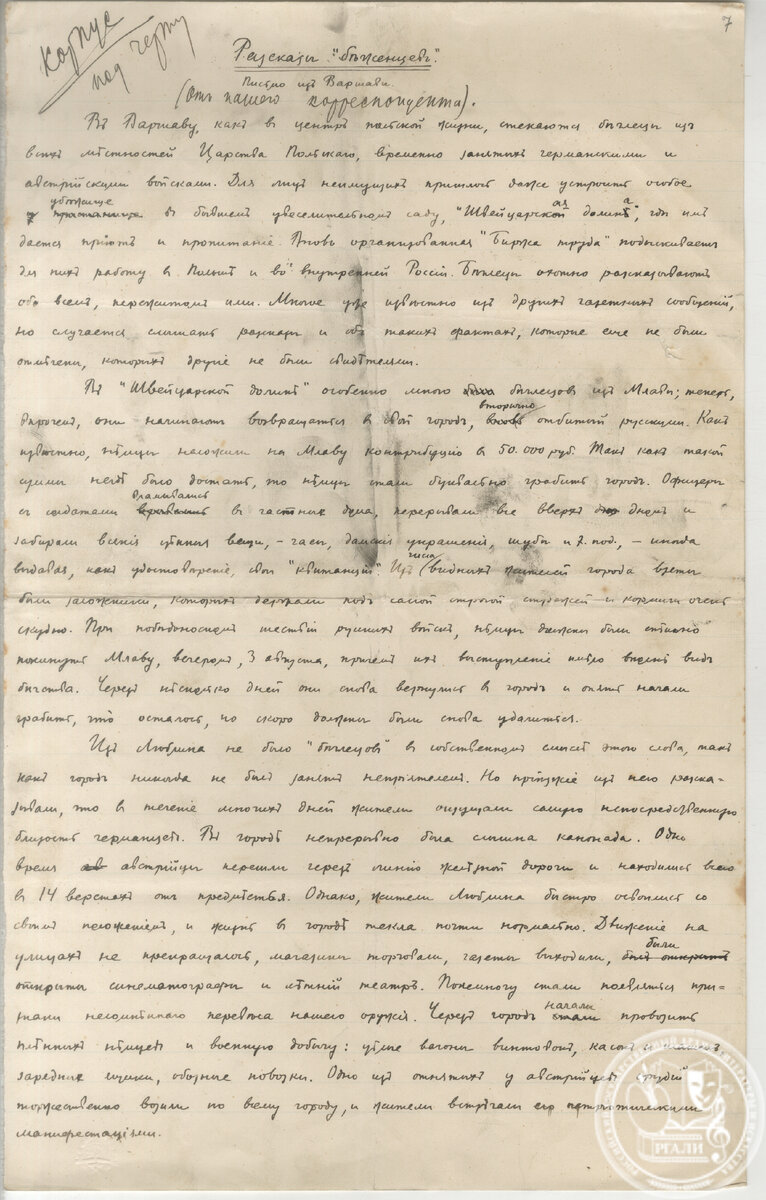 7
Корпус
под черту
Разсказы "бѣженцевъ".
Письмо изъ Варшавы.
(Отъ нашего корреспондента).
Въ Варшаву, какъ въ центръ польской жизни, стекаются бѣглецы изъ
всѣхъ мѣстностей Царства Польскаго, временно занятыхъ германскими и
австрійскими войсками. Для лицъ неимущихъ пришлось даже устроить особое
убѣжище въ бывшемъ увеселительномъ саду, "Швейцарская долина", гдѣ имъ
дается пріютъ и пропитаніе. Вновь организованная "Биржа труда" подыскиваетъ
для нихъ работу въ Польшѣ и во внутренней Россіи. Бѣглецы охотно разсказываютъ
обо всемъ, пережитомъ ими. Многое уже извѣстно изъ другихъ газетныхъ сообщеній,
но случается слышать разсказы и объ такихъ фактахъ, которые еще не были
отмѣчены, которыхъ другіе не были свидѣтелями.
Въ "Швейцарской долинѣ" особенно много бѣглецовъ изъ Млавы; теперь,
впрочемъ, они начинаютъ возвращаться въ свой городъ, вторично отбитый русскими. Какъ
извѣстно, нѣмцы наложили на Млаву контрибуцію въ 50.000 руб. Такъ какъ такой
суммы негдѣ было достать, то нѣмцы стали буквально грабить городъ. Офицеры
съ солдатами вламывались въ частные дома, перерывали все вверхъ дномъ и
забирали всякія цѣнныя вещи, - часы, дамскія украшенія, шубы и т. под., - иногда
выдавая, какъ удостовѣреніе, свои "квитанціи". Изъ числа видныхъ жителей города взяты
были заложники, которыхъ держали подъ самой строгой стражей и кормили очень
скудно. При побѣдоносномъ шествіи русскихъ войскъ, нѣмцы должны были спѣшно
покинуть Млаву, вечеромъ, 3 августа, причемъ ихъ выступленіе имѣло видъ
бѣгства. Черезъ нѣсколько дней они снова вернулись въ городъ и опять начали
грабить, что осталось, но скоро должны были снова удалиться.
Изъ Люблина не было "бѣглецовъ" въ собственномъ смыслѣ этого слова, такъ
какъ городъ никогда не былъ занятъ непріятелемъ. Но пріѣзжіе изъ него разска-
зывали, что въ теченіе многихъ дней жители ощущали самую непосредственную
близость германцевъ. Въ городѣ непрерывно была слышна канонада. Одно
время австрійцы перешли черезъ линію желѣзной дороги и находились всего
въ 14 верстахъ отъ предмѣстья. Однако, жители Люблина быстро освоились со
своимъ положеніемъ, и жизнь въ городѣ текла почти нормально. Движеніе на
улицахъ не прекращалось, магазины торговали, газеты выходили, были
открыты синематографы и лѣтній театръ. Понемногу стали появляться при-
знаки несомнѣннаго перевѣса нашего оружія. Черезъ городъ начали провозить
плѣнныхъ нѣмцевъ и военную добычу: цѣлые вагоны винтовокъ, касокъ и
зарядные ящики, обозныя повозки. Одно изъ отнятыхъ у австрійцевъ орудій
торжественно возили по всему городу, и жители встрѣчали его патріотическими
манифестаціями.
РГАЛИ